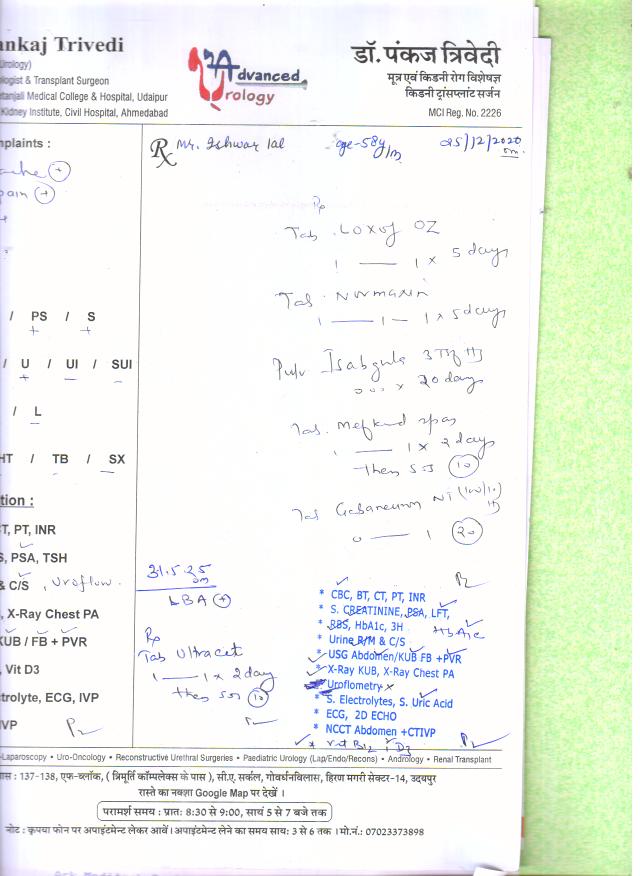 ankaj Trivedi
Urology)
logist & Transplant Surgeon
etanjali Medical College & Hospital, Udaipur
Kidney Institute, Civil Hospital, Ahmedabad
Advanced
Urology
डॉ. पंकज त्रिवेदी
मूत्र एवं किडनी रोग विशेषज्ञ
किडनी ट्रांसप्लांट सर्जन
MCI Reg. No. 2226
nplaints :
ache +
pain +
+
/ PS / S
+ +
/ U / UI / SUI
+ – –
/ L
–
HT / TB / SX
– –
tion :
T, PT, INR
S, PSA, TSH
& C/S, Uroflow.
, X-Ray Chest PA
KUB / FB + PVR
, Vit D3
trolyte, ECG, IVP
IVP
Rx Mr. Ishwar lal age-58y/m 25/12/2020
Rp
Tab. Loxof OZ
1 — 1 x 5 days
Tab. Normaxin
1 — 1 — 1 x 5 days
Isabgula 3
x 20 days
Tab. Meftand spas
1 — 1 x 2 days
then SOS 10
Tab Gabaneuron NT (100/10)
0 — 1 20
31.5.25
LBA +
Rp
Tab Ultracet
1 — 1 x 2 day
then SOS 10
* CBC, BT, CT, PT, INR
* S. CREATININE, PSA, LFT,
* RBS, HbA1c, 3H HbA1c
* Urine R/M & C/S
* USG Abdomen/KUB FB +PVR
* X-Ray KUB, X-Ray Chest PA
* Uroflometry
* S. Electrolytes, S. Uric Acid
* ECG, 2D ECHO
* NCCT Abdomen +CTIVP
* Vit B12, D3
-Laparoscopy • Uro-Oncology • Reconstructive Urethral Surgeries • Paediatric Urology (Lap/Endo/Recons) • Andrology • Renal Transplant
पास : 137-138, एफ-ब्लॉक, ( त्रिमूर्ति कॉम्पलेक्स के पास ), सी.ए. सर्कल, गोवर्धनविलास, हिरण मगरी सेक्टर-14, उदयपुर
रास्ते का नक्शा Google Map पर देखें ।
परामर्श समय : प्रात: 8:30 से 9:00, सायं 5 से 7 बजे तक
नोट : कृपया फोन पर अपाइंटमेन्ट लेकर आवें । अपाइंटमेन्ट लेने का समय सायः 3 से 6 तक । मो.नं.: 07023373898